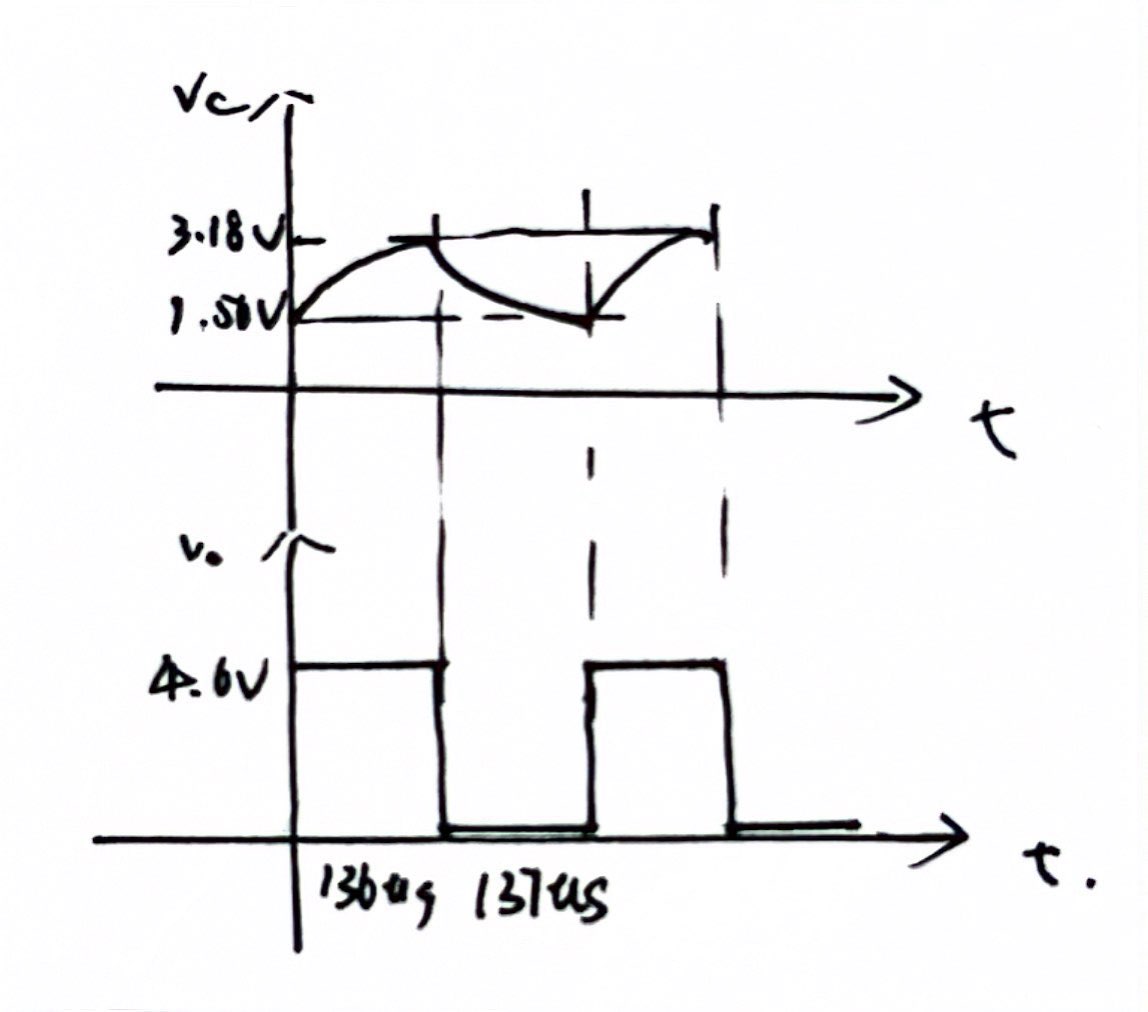 Vc
3.18V
1.50V
t
v.
4.6V
136us 137us
t.